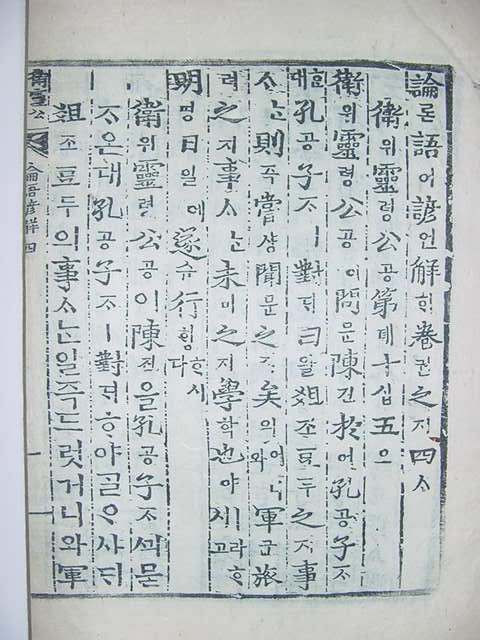 論론語어諺언解ᄒᆡ卷권之지四ᄉᆞ
衛위靈령公공第뎨十십五오
衛위靈령公공이問문陳진於어孔공子ᄌᆞ
ᄒᆞᆫ대孔공子ᄌᆞㅣ對ᄃᆡ曰왈俎조豆두之지事
ᄉᆞᄂᆞᆫ則즉嘗샹聞문之지矣의어니와軍군旅
려之지事ᄉᆞᄂᆞᆫ未미之지學학也야ㅣ라ᄒᆞ시고
明명日일에遂슈行ᄒᆡᆼᄒᆞ시다
衛위靈령公공이陳진을孔공子ᄌᆞᄭᅴ묻
ᄌᆞ온대孔공子ᄌᆞㅣ對ᄃᆡᄒᆞ야ᄀᆞᆯᄋᆞ샤ᄃᆡ
俎조豆두의事ᄉᆞᄂᆞᆫ일즉드럿거니와軍
衛靈公 論語諺解 四 一